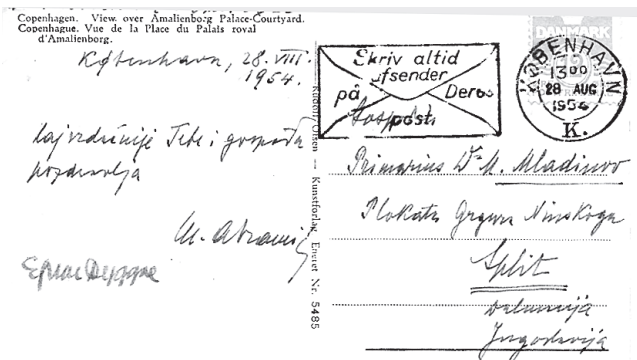 Copenhagen. View over Amalienborg Palace-Courtyard.
Copenhague. Vue de la Place du Palais royal
d'Amalienborg.
København, 28. VIII.
1954.
Najsrdačnije Tebe i gospođu
pozdravlja
M. Abramić
Rudolf Olsen — Kunstforlag Eneret Nr. 5485
Skriv altid
afsender
på Deres
post
DANMARK
KØBENHAVN
13 00
28 AUG
1954
K.
Gospod.
Primarius Dr. M. Mladinov
Plokata Grgura Ninskoga
Split
Dalmacija
Jugoslavija